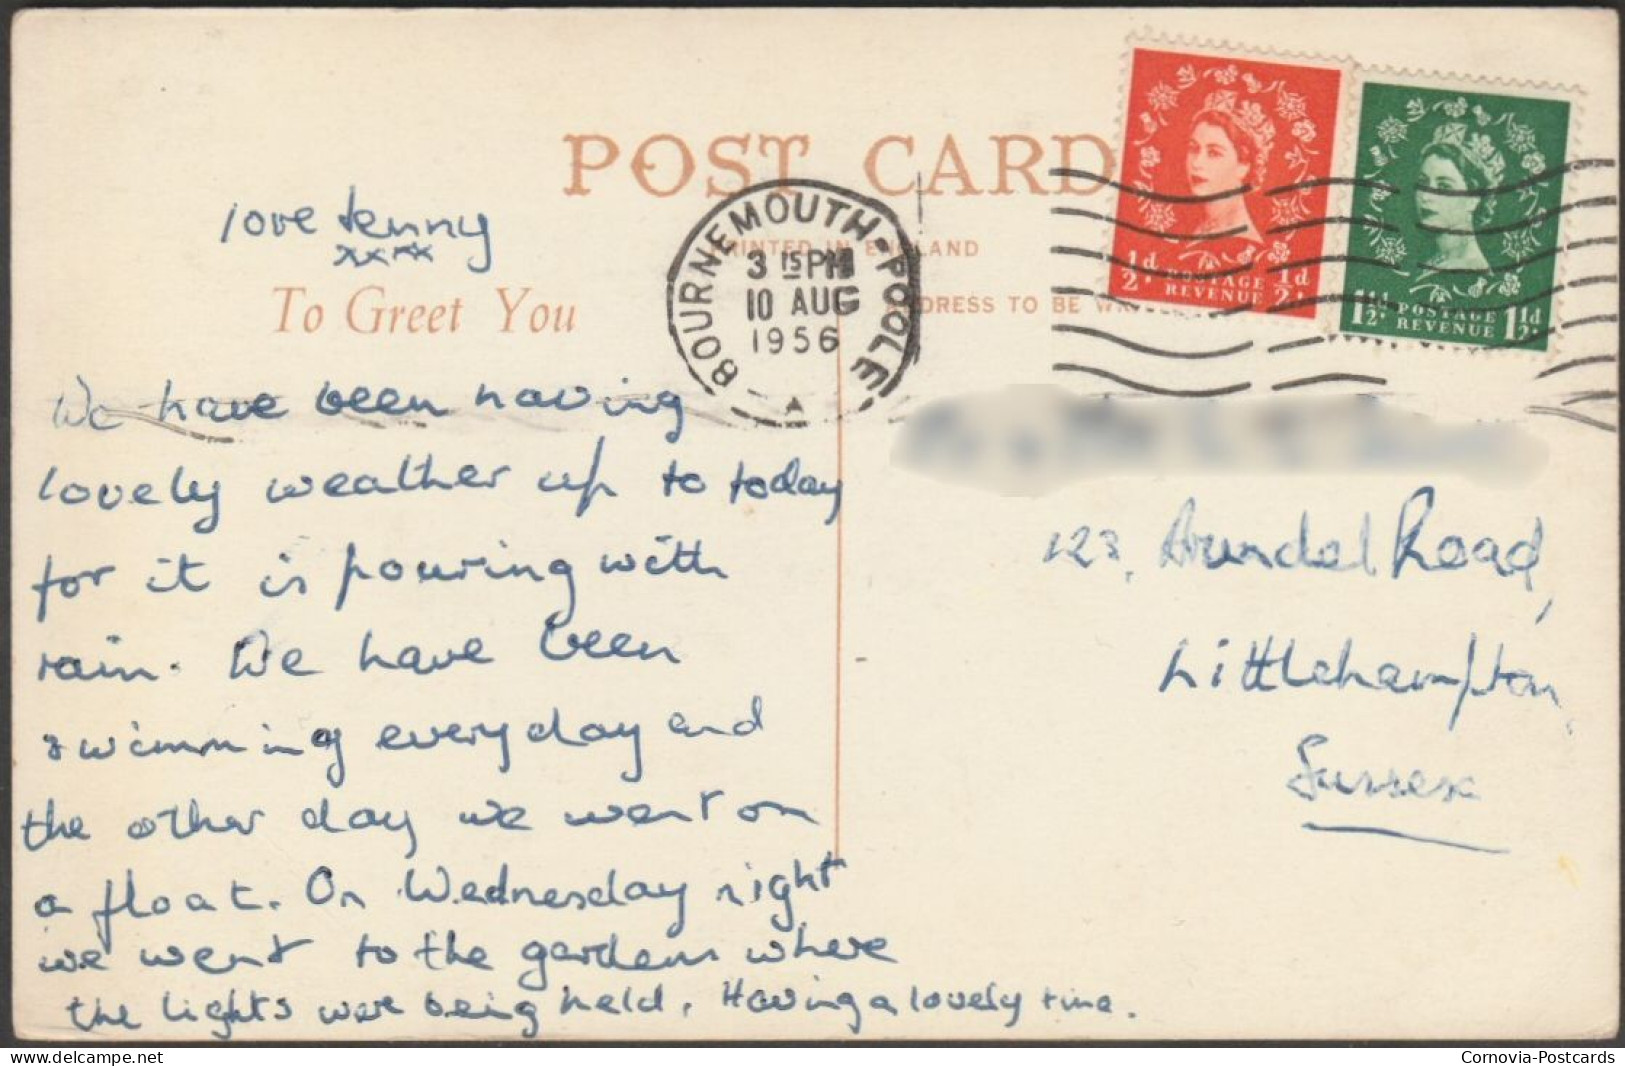 POST CARD
PRINTED IN ENGLAND
love Jenny
xxxx
To Greet You
ADDRESS TO BE
BOURNEMOUTH • POOLE
3 15 PM
10 AUG
1956
A
½d. POSTAGE REVENUE ½d.
1½d. POSTAGE REVENUE 1½d.
We have been having
lovely weather up to today
for it is pouring with
rain. We have been
swimming everyday and
the other day we went on
a float. On Wednesday night
we went to the gardens where
the lights were being held. Having a lovely time.
123, Arundel Road,
Littlehampton,
Sussex
Cornovia-Postcards